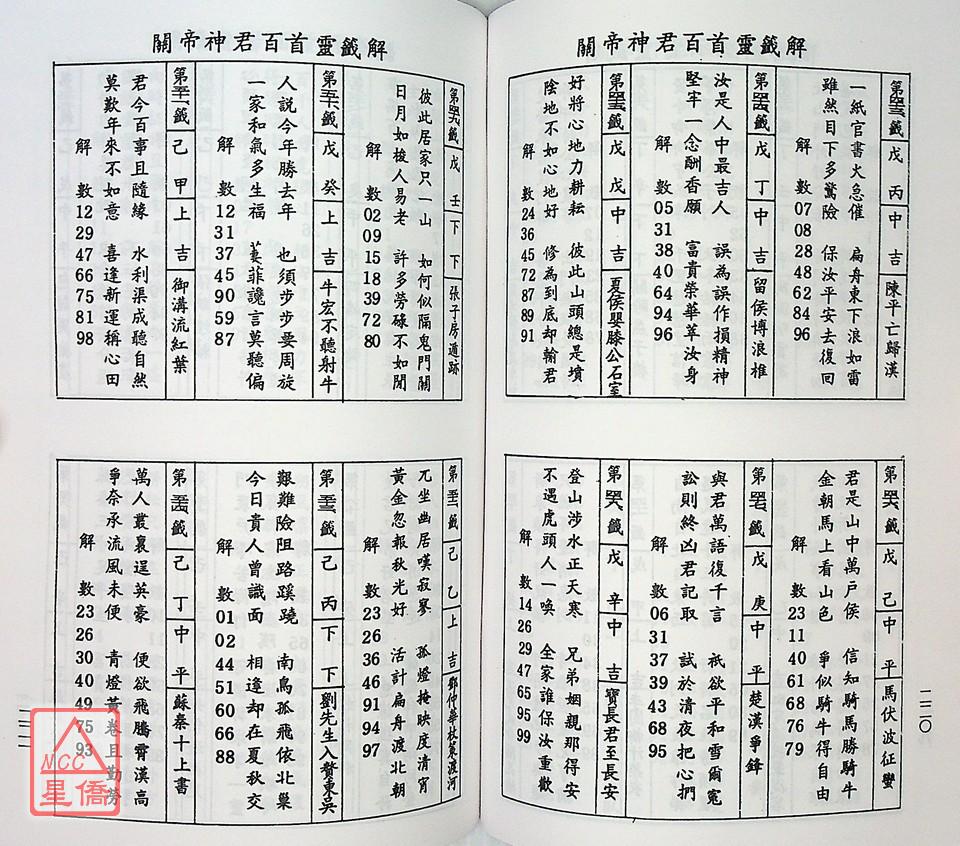 關帝神君百首靈籤解
第四三籤 戊丙 中吉 陳平亡歸漢
一紙官書火急催 扁舟東下浪如雷
雖然目下多驚險 保汝平安去復回
解 數07 08 28 48 62 84 96
第四四籤 戊丁 中吉 留侯博浪椎
汝是人中最吉人 誤為誤作損精神
堅牢一念酬香願 富貴榮華萃汝身
解 數05 31 38 40 64 94 96
第四五籤 戊戊 中吉 夏侯嬰滕公石室
好將心地力耕耘 彼此山頭總是墳
陰地不如心地好 修為到底却輸君
解 數24 36 45 72 87 89 91
第四六籤 戊己 中平 馬伏波征蠻
君是山中萬戶侯 信知騎馬勝騎牛
金朝馬上看山色 爭似騎牛得自由
解 數23 11 40 61 68 76 79
第四七籤 戊庚 中平 楚漢爭鋒
與君萬語復千言 祇欲平和雪爾寃
訟則終凶君記取 試於清夜把心捫
解 數06 31 37 39 43 68 95
第四八籤 戊辛 中吉 竇長君至長安
登山涉水正天寒 兄弟姻親那得安
不遇虎頭人一喚 全家誰保汝重歡
解 數14 26 29 47 65 95 99
一二〇
關帝神君百首靈籤解
第四九籤 戊壬 下下 張子房遁跡
彼此居家只一山 如何似隔鬼門關
日月如梭人易老 許多勞碌不如閒
解 數02 09 15 18 39 72 80
第五十籤 戊癸 上吉 牛宏不聽射牛
人説今年勝去年 也須步步要周旋
一家和氣多生福 萋菲讒言莫聽偏
解 數12 31 37 45 90 59 87
第五一籤 己甲 上吉 御溝流紅葉
君今百事且隨緣 水利渠成聽自然
莫歎年來不如意 喜逢新運稱心田
解 數12 29 47 66 75 81 98
第五二籤 己乙 上吉 鄧仲華杖策渡河
兀坐幽居嘆寂寥 孤燈掩映度清宵
黃金忽報秋光好 活計扁舟渡北朝
解 數23 26 36 46 91 94 97
第五三籤 己丙 下下 劉先生入贅東吳
艱難險阻路蹊蹺 南鳥孤飛依北巢
今日貴人曾識面 相逢却在夏秋交
解 數01 02 44 51 60 66 88
第五四籤 己丁 中平 蘇秦十上書
萬人叢裏逞英豪 便欲飛騰霄漢高
爭奈承流風未便 青燈黃卷且勤勞
解 數23 26 30 40 49 75 93
MCC
星僑